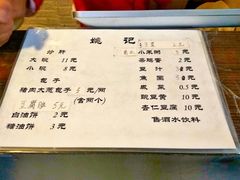 姚记
炒肝
大碗 11元
小碗 8元
包子
猪肉大葱包子 3元/两
(含两个)
豆腐脑 5元
白油饼 2元
糖油饼 3元
小米粥 3元
茶鸡蛋 2元
豆汁 3元
焦圈 3元
咸菜 0.5元
豌豆黄 10元
杏仁豆腐 10元
售酒水饮料